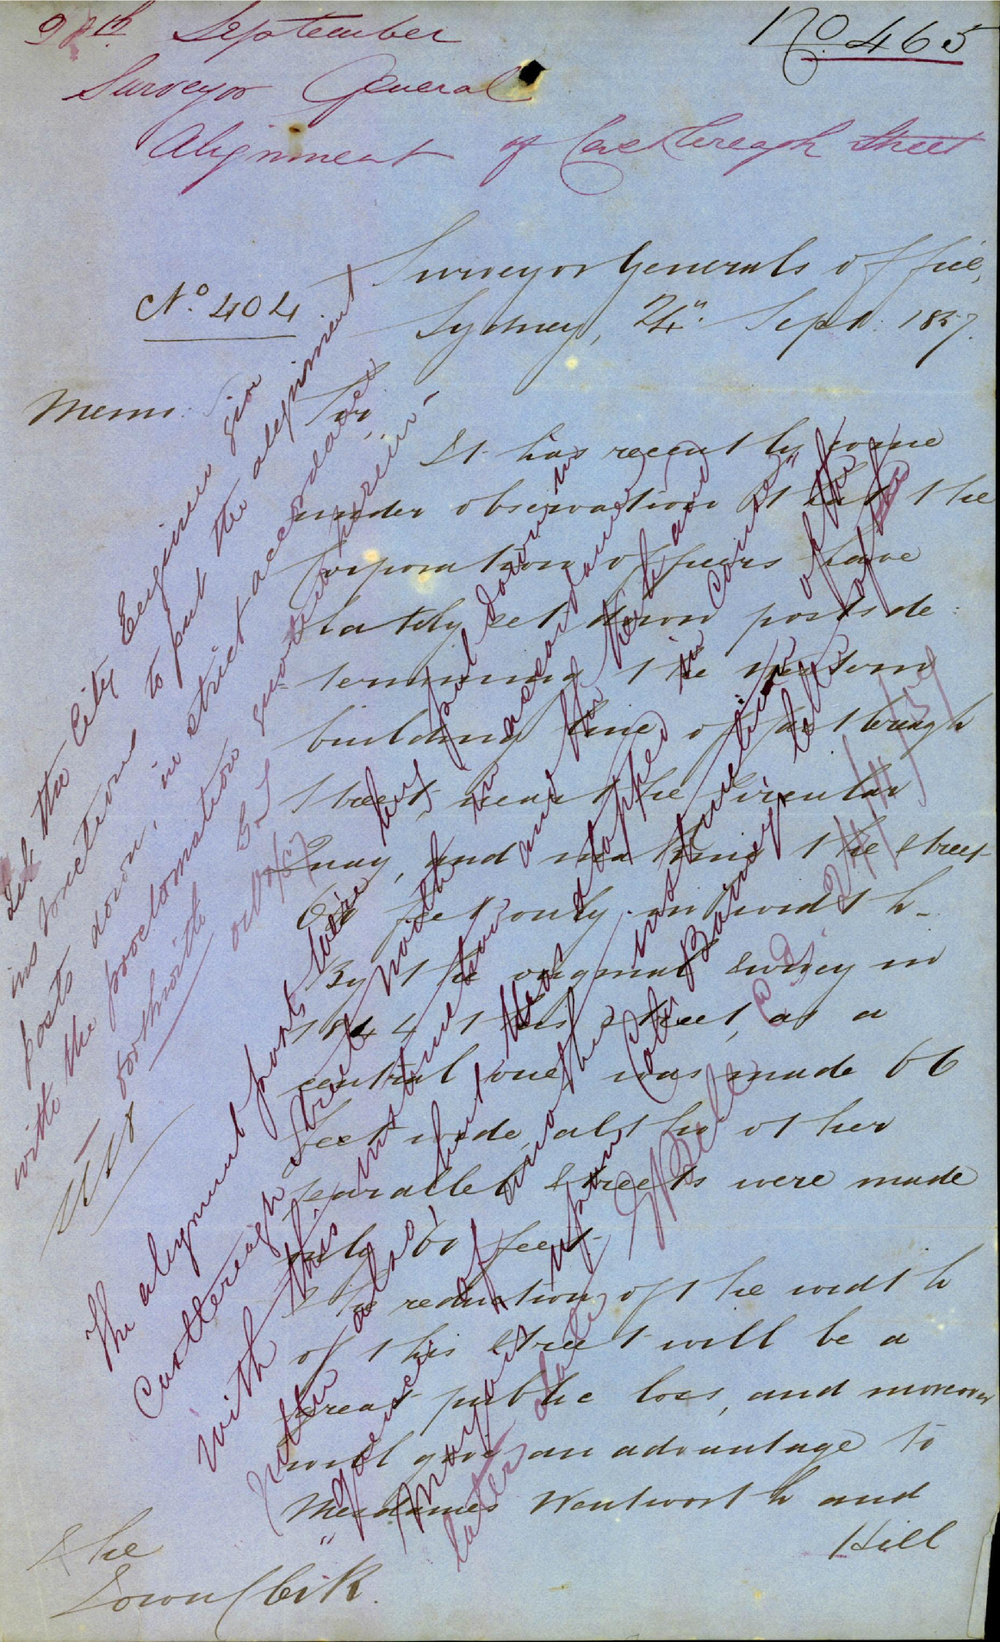 28th September
No. 465
Surveyor General
Alignment of Castlereagh Street
Surveyor Generals Office,
No. 404
Sydney, 24th Sept. 1857.
Memo:
Sir,
It has recently come
under observation that the
Corporation officers have
lately set down posts de
-termining the
building line of Castlereagh
Street near the Circular
Quay, and making the street
60 feet only in width.
By the original survey in
1844 this street, as a
central one, was made 66
feet wide, altho other
parallel streets were made
only 60 feet.
The reduction of the width
of this street will be a
great public loss, and moreover
will give an advantage to
Mesdames Wentworth and
Hill
The
Town Clerk.
Let the City Engineer give
instructions to put the alignment
posts down, in strict accordance
with the proclamation quoted herein
forthwith
The alignment posts were being put down in
Castlereagh Street north in accordance
with this instruction and the Kent and
put the also, but was stopped in consequence
of another instruction of the
Mayor upon Col: Barney's letter of
later date
24/11/57